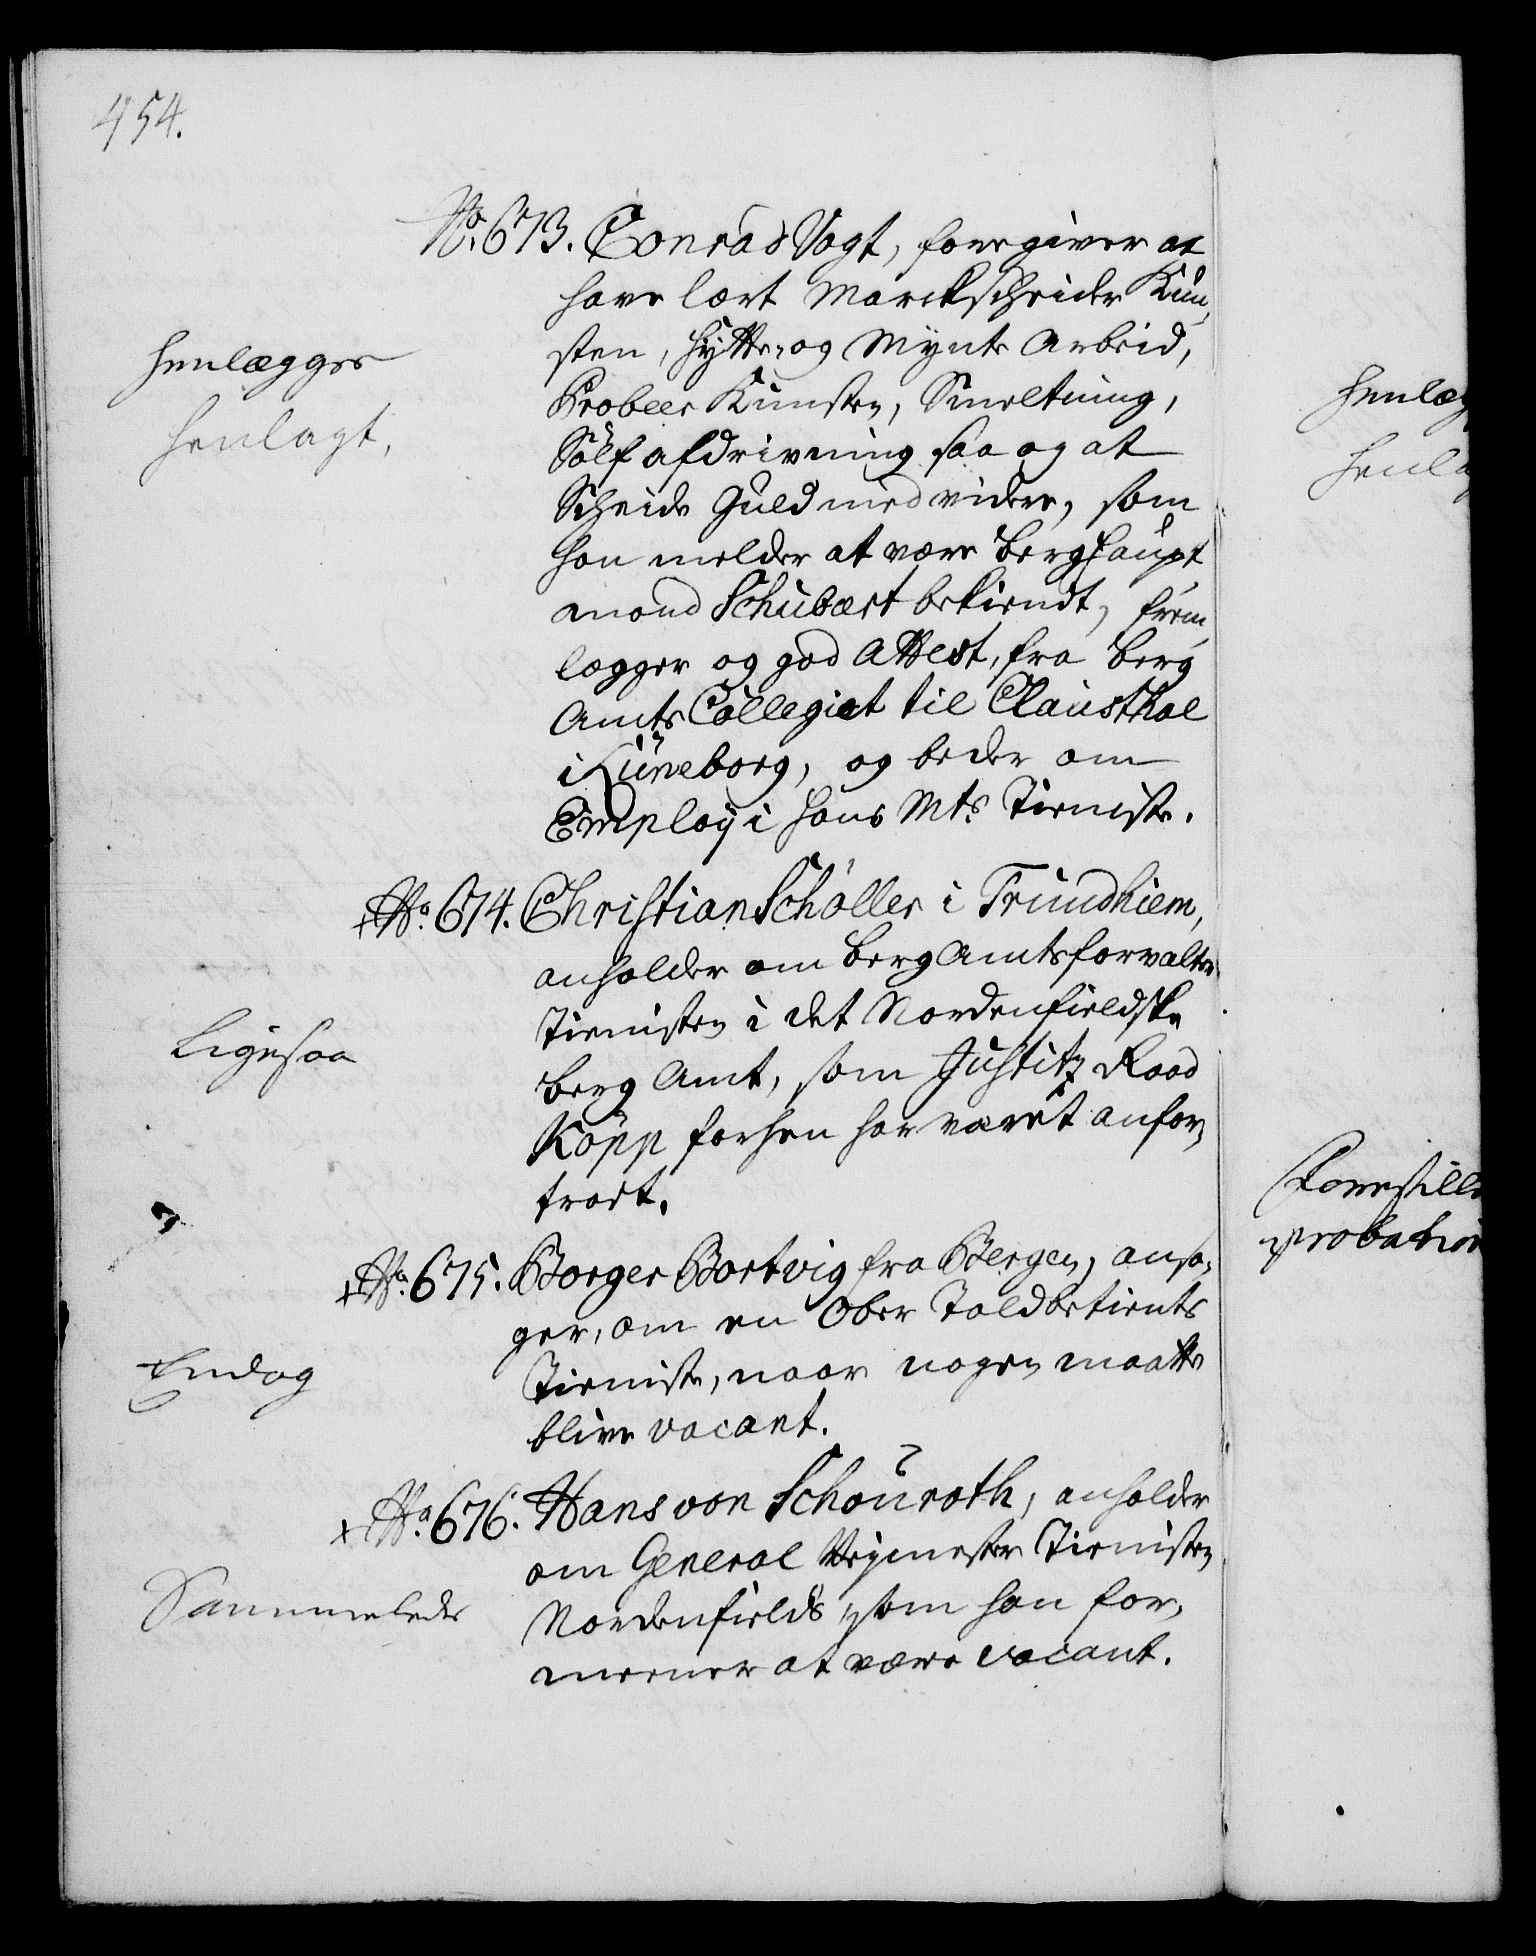 454.
No. 673. Conrad Vogt, foregiver at
have lært Marckscheider Kun,
sten, Hytte- og Mynte Arbeid,
Probeer Kunsten, Smeltning,
Sölf afdrivning saa og at
Scheide Guld med videre, som
han melder at være Berghaupt
mand Schubært bekiendt, frem,
legger og god Attest, fra Berg
Amts Collegiet til Clausthal
i Lüneborg, og beder om
Employ i Hans Mts. Tieniste.
Henlægges
Henlagt.
+ No. 674. Christian Schøller i Trundhiem,
anholder om Berg Amtsforvalter
Tienisten i det Nordenfieldske
Berg Amt, som Justitz Raad
Köpp forhen har været anfor,
troet.
Ligesaa
+ No. 675. Borger Bortvig fra Bergen, ansø,
ger, om en Ober Toldbetients
Tieniste, naar nogen maatte
blive vacant.
Endog
+ No. 676. Hans von Schouroth, anholder
om General Veymester Tienisten
Nordenfields, som han for,
meener at være vacant.
Sammeledes
Henlæg
Henla
Forestille
probation